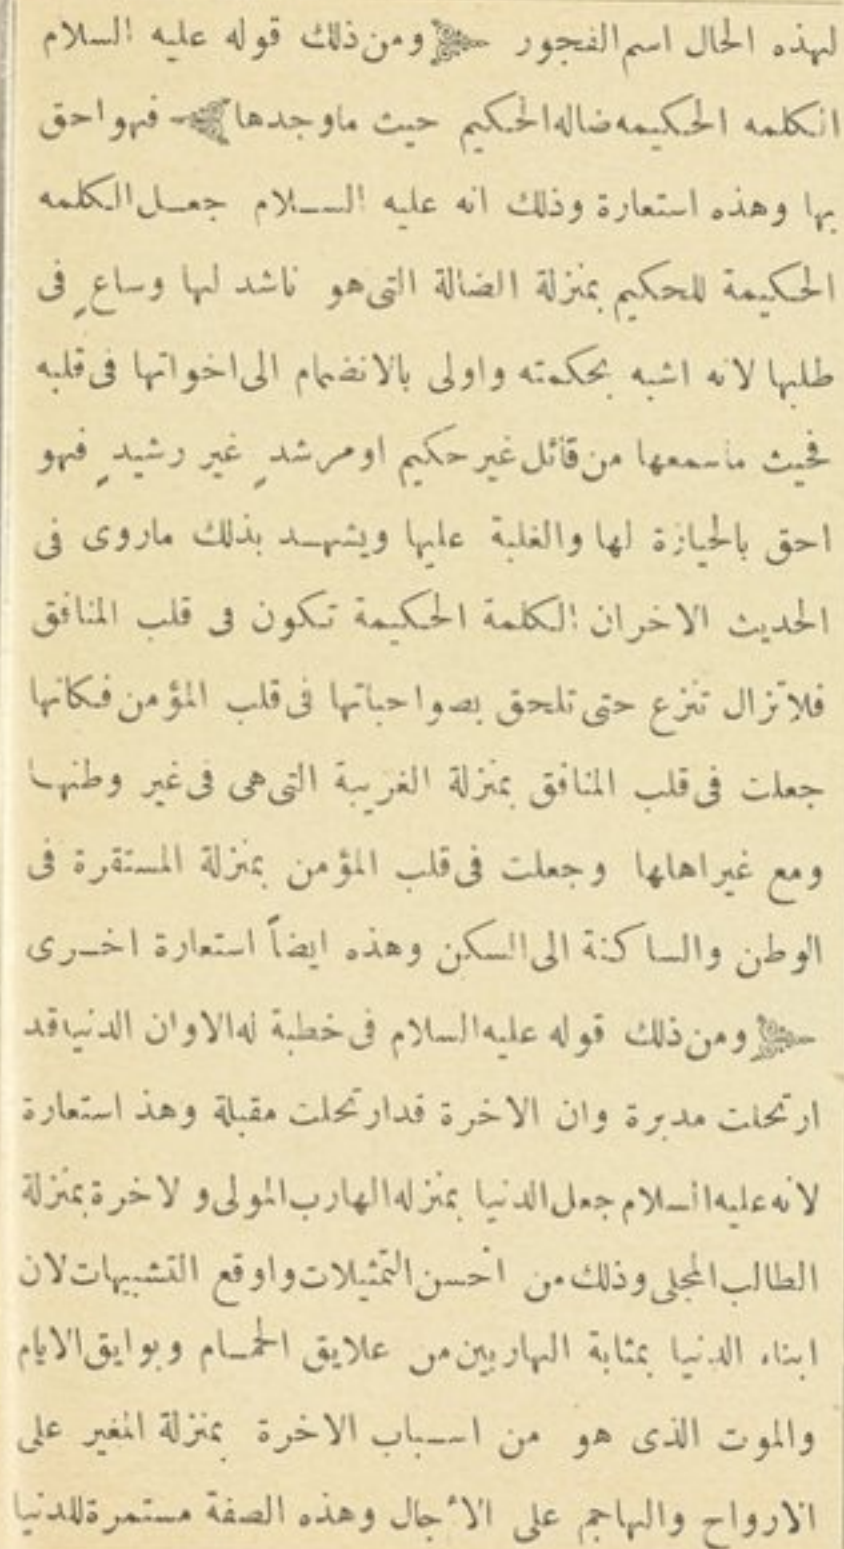 لهذه الحال اسم الفجور ﴿ومن ذلك قوله عليه السلام
الكلمه الحكيمه ضاله الحكيم حيث ماوجدها﴾ فهو احق
بها وهذه استعارة وذلك انه عليه السلام جعل الكلمه
الحكيمة للحكيم بمنزلة الضالة التى هو ناشد لها وساعٍ فى
طلبها لانه اشبه بحكمته واولى بالانضمام الى اخواتها فى قلبه
فحيث ماسمعها من قائل غير حكيم او مرشدٍ غير رشيدٍ فهو
احق بالحيازة لها والغلبة عليها ويشهد بذلك ماروى فى
الحديث الاخر ان الكلمة الحكيمة تكون فى قلب المنافق
فلا تزال تنزع حتى تلحق بصواحباتها فى قلب المؤمن فكانها
جعلت فى قلب المنافق بمنزلة الغريبة التى هى فى غير وطنها
ومع غير اهلها وجعلت فى قلب المؤمن بمنزلة المستقرة فى
الوطن والساكنة الى السكن وهذه ايضاً استعارة اخرى
﴿ومن ذلك قوله عليه السلام فى خطبة له الاوان الدنيا قد
ارتحلت مدبرة وان الاخرة قد ارتحلت مقبلة وهذ استعارة
لانه عليه السلام جعل الدنيا بمنزله الهارب المولى و لاخرة بمنزلة
الطالب المجلى وذلك من احسن التمثيلات واوقع التشبيهات لان
ابناء الدنيا بمثابة الهاربين من علايق الحمام وبوايق الايام
والموت الذى هو من اسباب الاخرة بمنزلة المغير على
الارواح والهاجم على الآجال وهذه الصفة مستمرة للدنيا